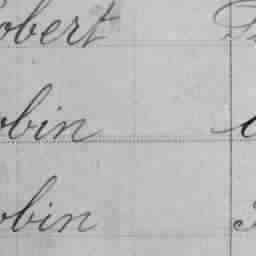 obert
obin
obin